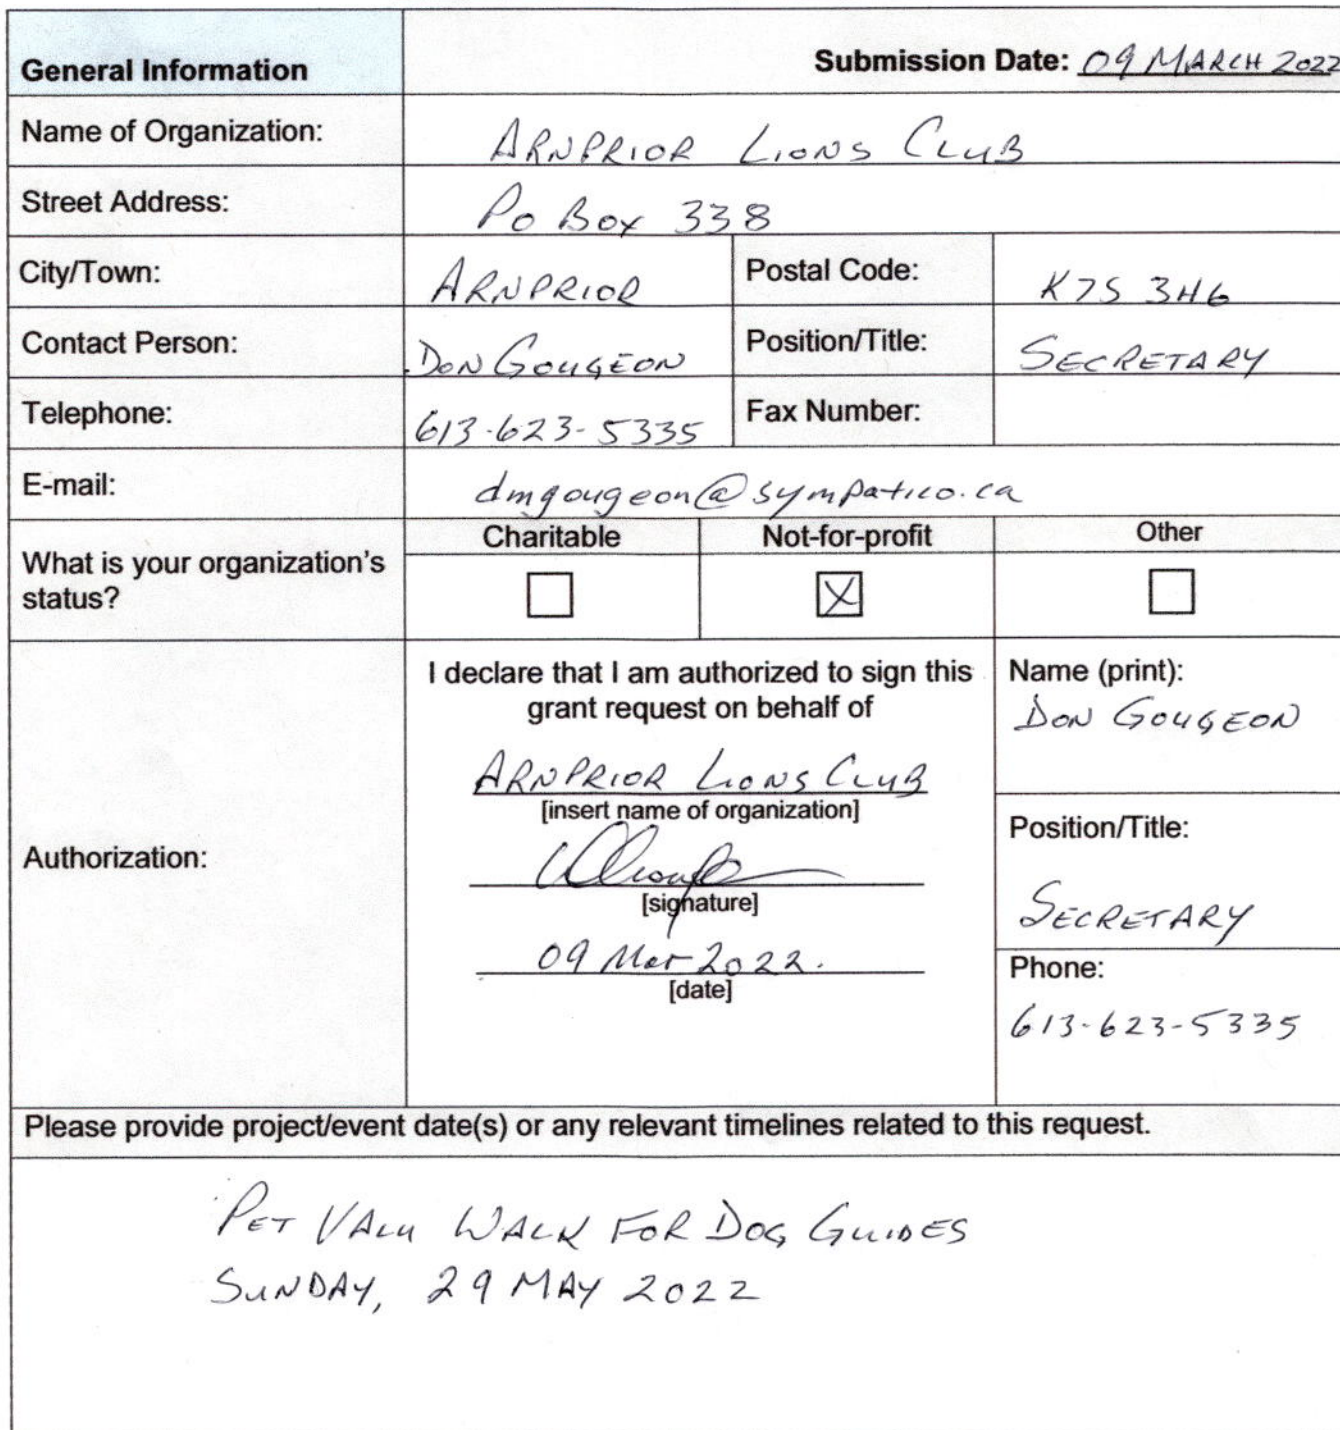 General Information
Submission Date: 09 MARCH 2022
Name of Organization: ARNPRIOR LIONS CLUB
Street Address: PO BOX 338
City/Town: ARNPRIOR Postal Code: K7S 3H6
Contact Person: DON GOUGEON Position/Title: SECRETARY
Telephone: 613-623-5335 Fax Number:
E-mail: dmgougeon@sympatico.ca
What is your organization's
status?
Charitable Not-for-profit Other
X
Authorization:
I declare that I am authorized to sign this
grant request on behalf of
ARNPRIOR LIONS CLUB
[insert name of organization]
[signature]
09 Mar 2022.
[date]
Name (print):
DON GOUGEON
Position/Title:
SECRETARY
Phone:
613-623-5335
Please provide project/event date(s) or any relevant timelines related to this request.
PET VALU WALK FOR DOG GUIDES
SUNDAY, 29 MAY 2022